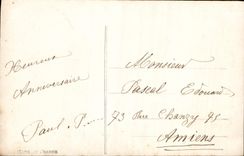 Heureux
Anniversaire
Paul P.
Monsieur
Pascal Edouard
73 Rue Chanzy 75
Amiens